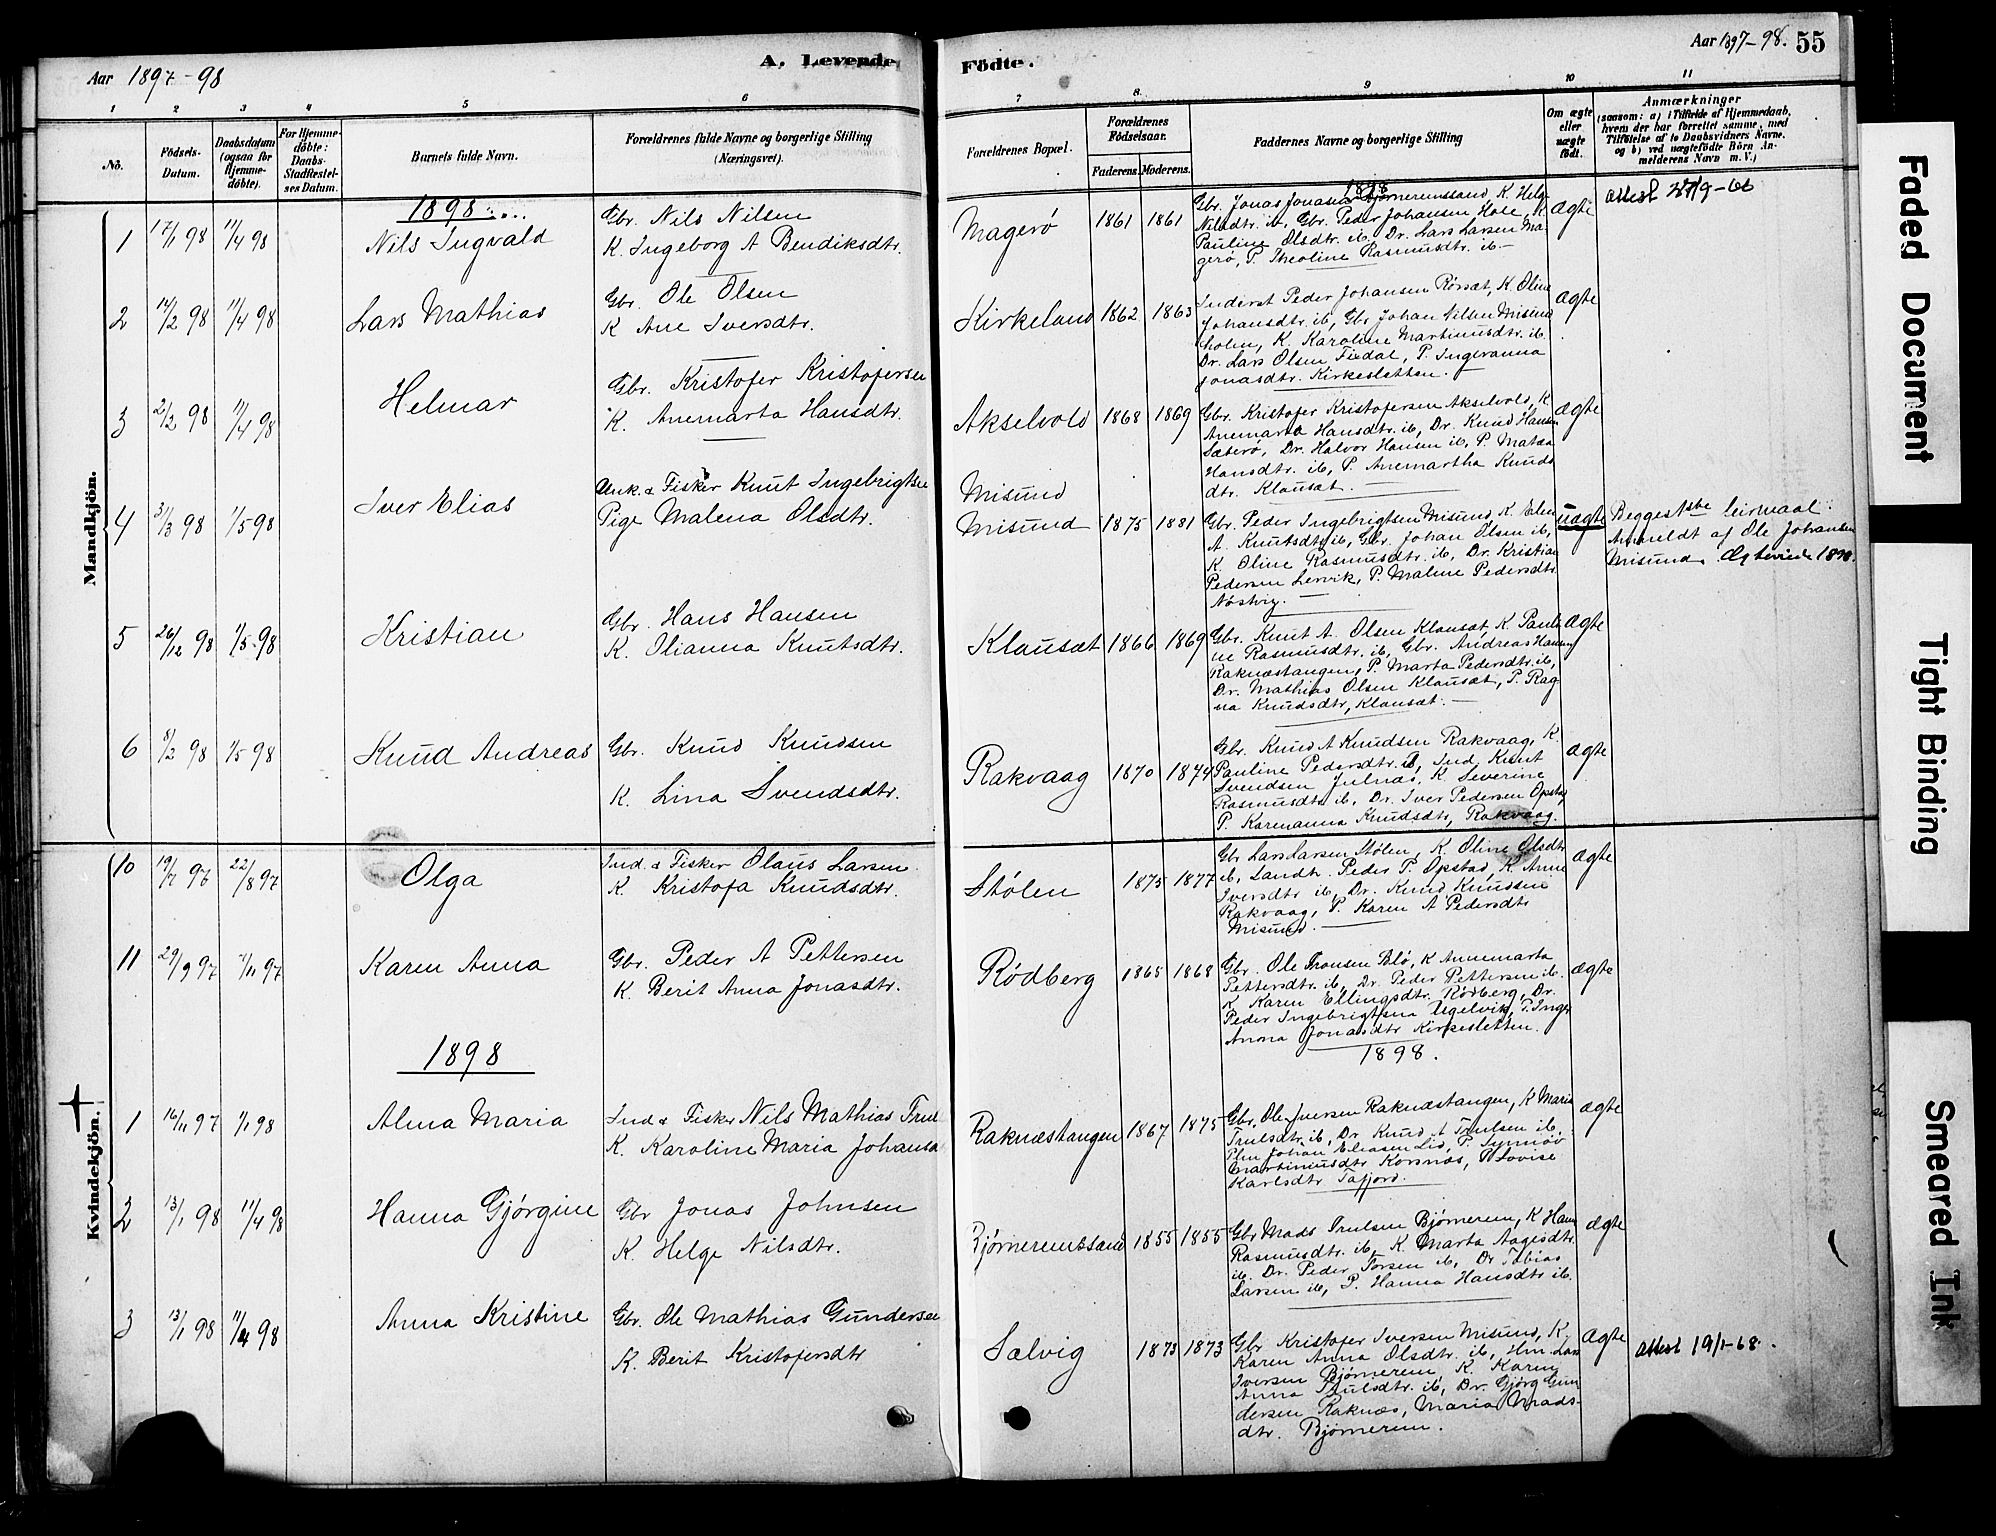 Aar 1897-98
A. Levende
Födte.
Aar 1897-98. 55
1 2 3 4 5 6 7 8 9 10 11
No.
Födsels-Datum.
Daabsdatum (ogsaa for Hjemme-döbte).
For Hjemme-döbte: Daabs-Stadfæstel-ses Datum.
Barnets fulde Navn.
Forældrenes fulde Navne og borgerlige Stilling (Næringsvei).
Forældrenes Bopæl.
Forældrenes Födselsaar.
Faderens. Moderens.
Faddernes Navne og borgerlige Stilling
Om ægte eller uægte födt.
Anmærkninger
(saasom: a) i Tilfælde af Hjemmedaab, hvem der har forrettet samme, med Tilföielse af to Daabsvidners Navne, og b) ved uægtefödte Börn An-melderens Navn m. V.)
Mandkjön.
1898
1 17/1 98 11/4 98 Nils Ingvald
Gbr. Nils Nilsen
K. Ingeborg A Bendiksdtr.
Magerö 1861 1861
1898
Gbr. Jonas Jonasen Bjørneremssand K. Helge
Nilsdtr. ib, Gbr. Peder Johansen Hole, K.
Pauline Olsdtr. ib. Dr. Lars Larsen Ma-
gerø, P. Theoline Rasmusdtr. ib.
ægte
2 14/2 98 11/4 98 Lars Mathias
Gbr. Ole Olsen
K Ane Iversdtr.
Kirkeland 1862 1863
Inderst Peder Johansen Rörsæt, K Oline
Johansdtr. ib, Gbr Johan Nilsen Misund
holen, K. Karoline Martinusdtr. ib.
Dr. Lars Olsen Fixdal, P. Ingeranna
Jonasdtr. Kirkesletten.
ægte
3 2/2 98 11/4 98 Helmar
Gbr. Kristofer Kristofersen
K. Anemarta Hansdtr.
Akselvold 1868 1869
Gbr. Kristofer Kristofersen Akselvold, K
Anemarta Hansdtr. ib, Dr. Knud Hansen
Sæterö, Dr. Halvor Hansen ib, P. Matea
Hansdtr. ib, P. Anemartha Knuds
dtr. Klausæt.
ægte
4 31/3 98 1/5 98 Iver Elias
Unk. & Fisker Knut Ingebrigtsen
Pige Malena Olsdtr.
Misund
Misund 1875 1881
Gbr. Peder Ingebrigtsen Misund, K. Elen
A. Knutsdtr ib, Gbr. Johan Olsen ib,
K. Oline Rasmusdtr. ib, Dr. Kristian
Pedersen Lervik, P. Maline Pedersdtr
Nöstvig.
uægte
Begges 1ste leirmaal
Anmeldt af Ole Johansen
Misund. Ægteviede 1898.
5 26/12 98 1/5 98 Kristian
Gbr. Hans Hansen
K. Olianna Knutsdtr.
Klausæt 1866 1869
Gbr. Knut A. Olsen Klausæt K. Pauli
ne Rasmusdtr. ib, Gbr. Andreas Hansen
Raknæstangen, P. Marta Pedersdtr. ib,
Dr. Mathias Olsen Klausæt, P. Rag
na Knudsdtr, Klausæt.
ægte
6 8/2 98 1/5 98 Knud Andreas
Gbr. Knud Knudsen
K. Lina Svendsdtr.
Rakvaag 1870 1874
Gbr. Knud A Knudsen Rakvaag, K.
Pauline Pedersdtr. ib, Ind. Knut
Svendsen Julnæs, K Severine
Rasmusdtr ib, Dr. Iver Pedersen Opstad
P. Karenanna Knudsdtr, Rakvaag.
ægte
Kvindekjön.
10 19/7 97 22/8 97 Olga
Ind. & Fisker Olaus Larsen
K. Kristofa Knudsdtr.
Stölen 1875 1877
Gbr Lars Larsen Stölen, K. Oline Olsdtr
ib, Landh. Peder P. Opstad, K Anne
Iversdtr ib, Dr. Knud Knudsen
Rakvaag, P. Karen A Pedersdtr
Misund.
ægte
11 29/9 97 7/11 97 Karen Anna
Gbr. Peder A Pettersen
K. Berit Anna Jonasdtr.
Rödberg 1865 1868
Gbr. Ole Tronsen Blö, K Annemarta
Pettersdtr. ib, Dr. Peder Pettersen ib.
K Karen Ellingsdtr. Rödberg, Dr.
Peder Ingebrigtsen Ugelvik, P. Inger
Anna Jonasdtr Kirkesletten.
ægte
1898
1898.
1 16/11 97 1/1 98 Alma Maria
Ind & Fisker Nils Mathias Trul
K. Karoline Maria Johansd
Raknæstangen 1867 1875
Gbr. Ole Iversen Raknæstangen, K Maria
Trulsdtr. ib, Dr. Knud A Trulsen ib.
Johan Eliasen Lid, P. Synnöv
Martinusdtr Korsnæs, P. Lovise
Karlsdtr Tafjord.
ægte
2 13/1 98 11/4 98 Hanna Gjörgine
Gbr Jonas Johnsen
K. Helge Nilsdtr.
Bjørneremssand 1855 1855
Gbr Mads Trulsen Bjørnerem, K Hanna
Rasmusdtr. ib, K. Marta Aagesdtr.
ib. Dr. Peder Torsen ib, Dr Tobias
Larsen ib, P. Hanna Hansdtr ib.
ægte
3 13/1 98 11/4 98 Anna Kristine
Gbr. Ole Mathias Gundersen
K. Berit Kristofersdtr
Sælvig 1873 1873
Gbr Kristofer Iversen Misund, K.
Karen Anna Olsdtr. ib, Hm. Lars
Iversen Bjørnerem, K. Karen
Anna Trulsdtr. ib, Dr. Gjörg Gun
dersen Raknæs, Maria Mads-
dtr. Bjørnerem.
ægte
attest 19/1-68.
Faded Document
Tight Binding
Smeared Ink